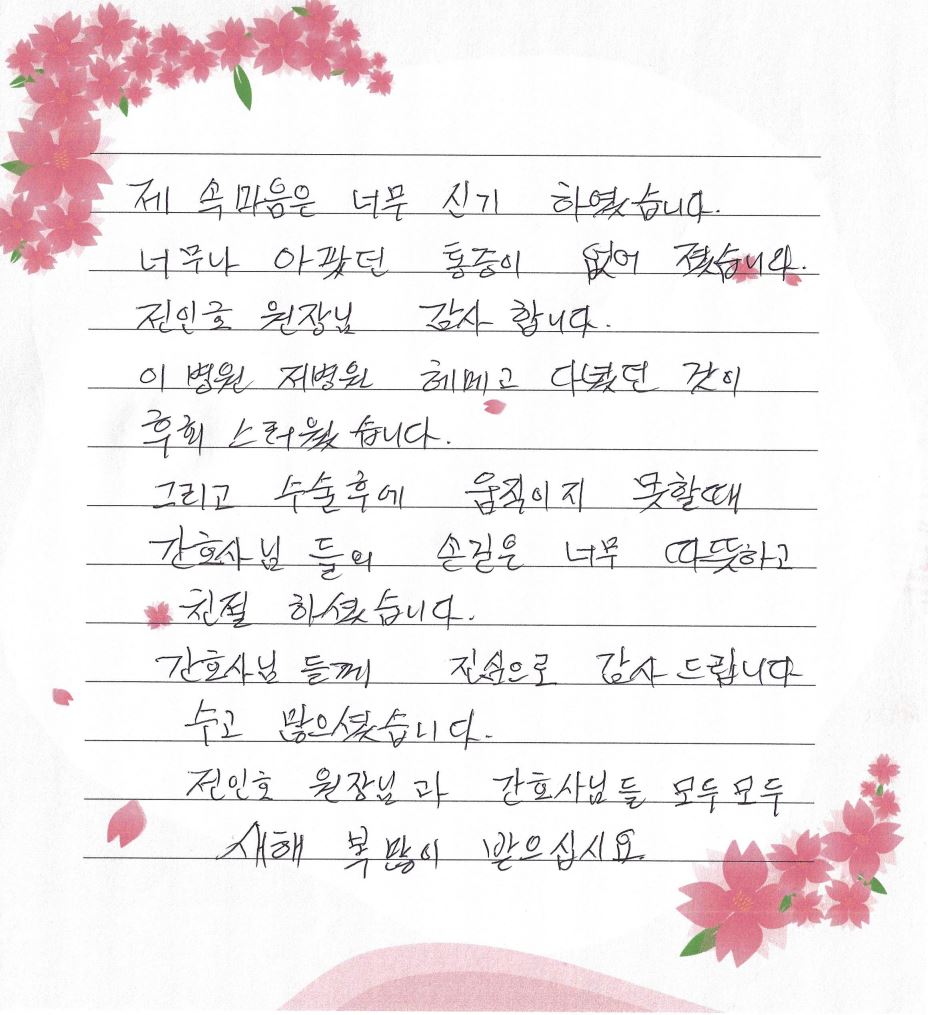 제 속마음은 너무 신기 하였습니다.
너무나 아팠던 통증이 없어 졌습니다.
전인호 원장님 감사 합니다.
이 병원 저병원 헤메고 다녔던 것이
후회 스러웠 습니다.
그리고 수술후에 움직이지 못할때
간호사님 들의 손길은 너무 따뜻하고
친절 하셨습니다.
간호사님 들께 진심으로 감사 드립니다
수고 많으셨습니다.
전인호 원장님과 간호사님들 모두모두
새해 복많이 받으십시요